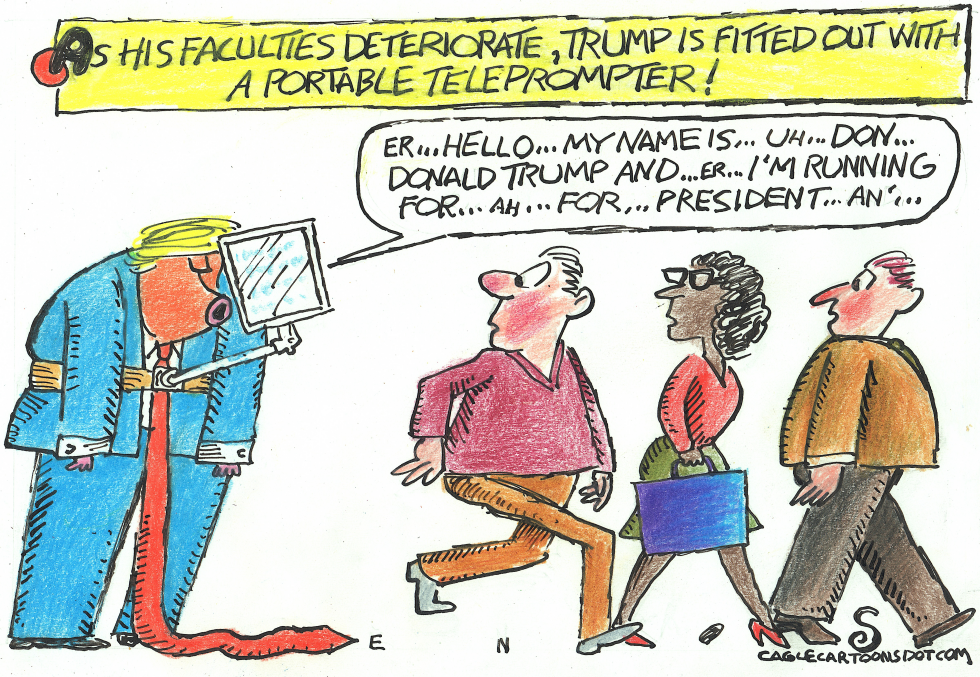 AS HIS FACULTIES DETERIORATE, TRUMP IS FITTED OUT WITH
A PORTABLE TELEPROMPTER!
ER...HELLO... MY NAME IS... UH... DON...
DONALD TRUMP AND...ER... I'M RUNNING
FOR... AH... FOR... PRESIDENT... AN'...
E N S
CAGLECARTOONSDOTCOM